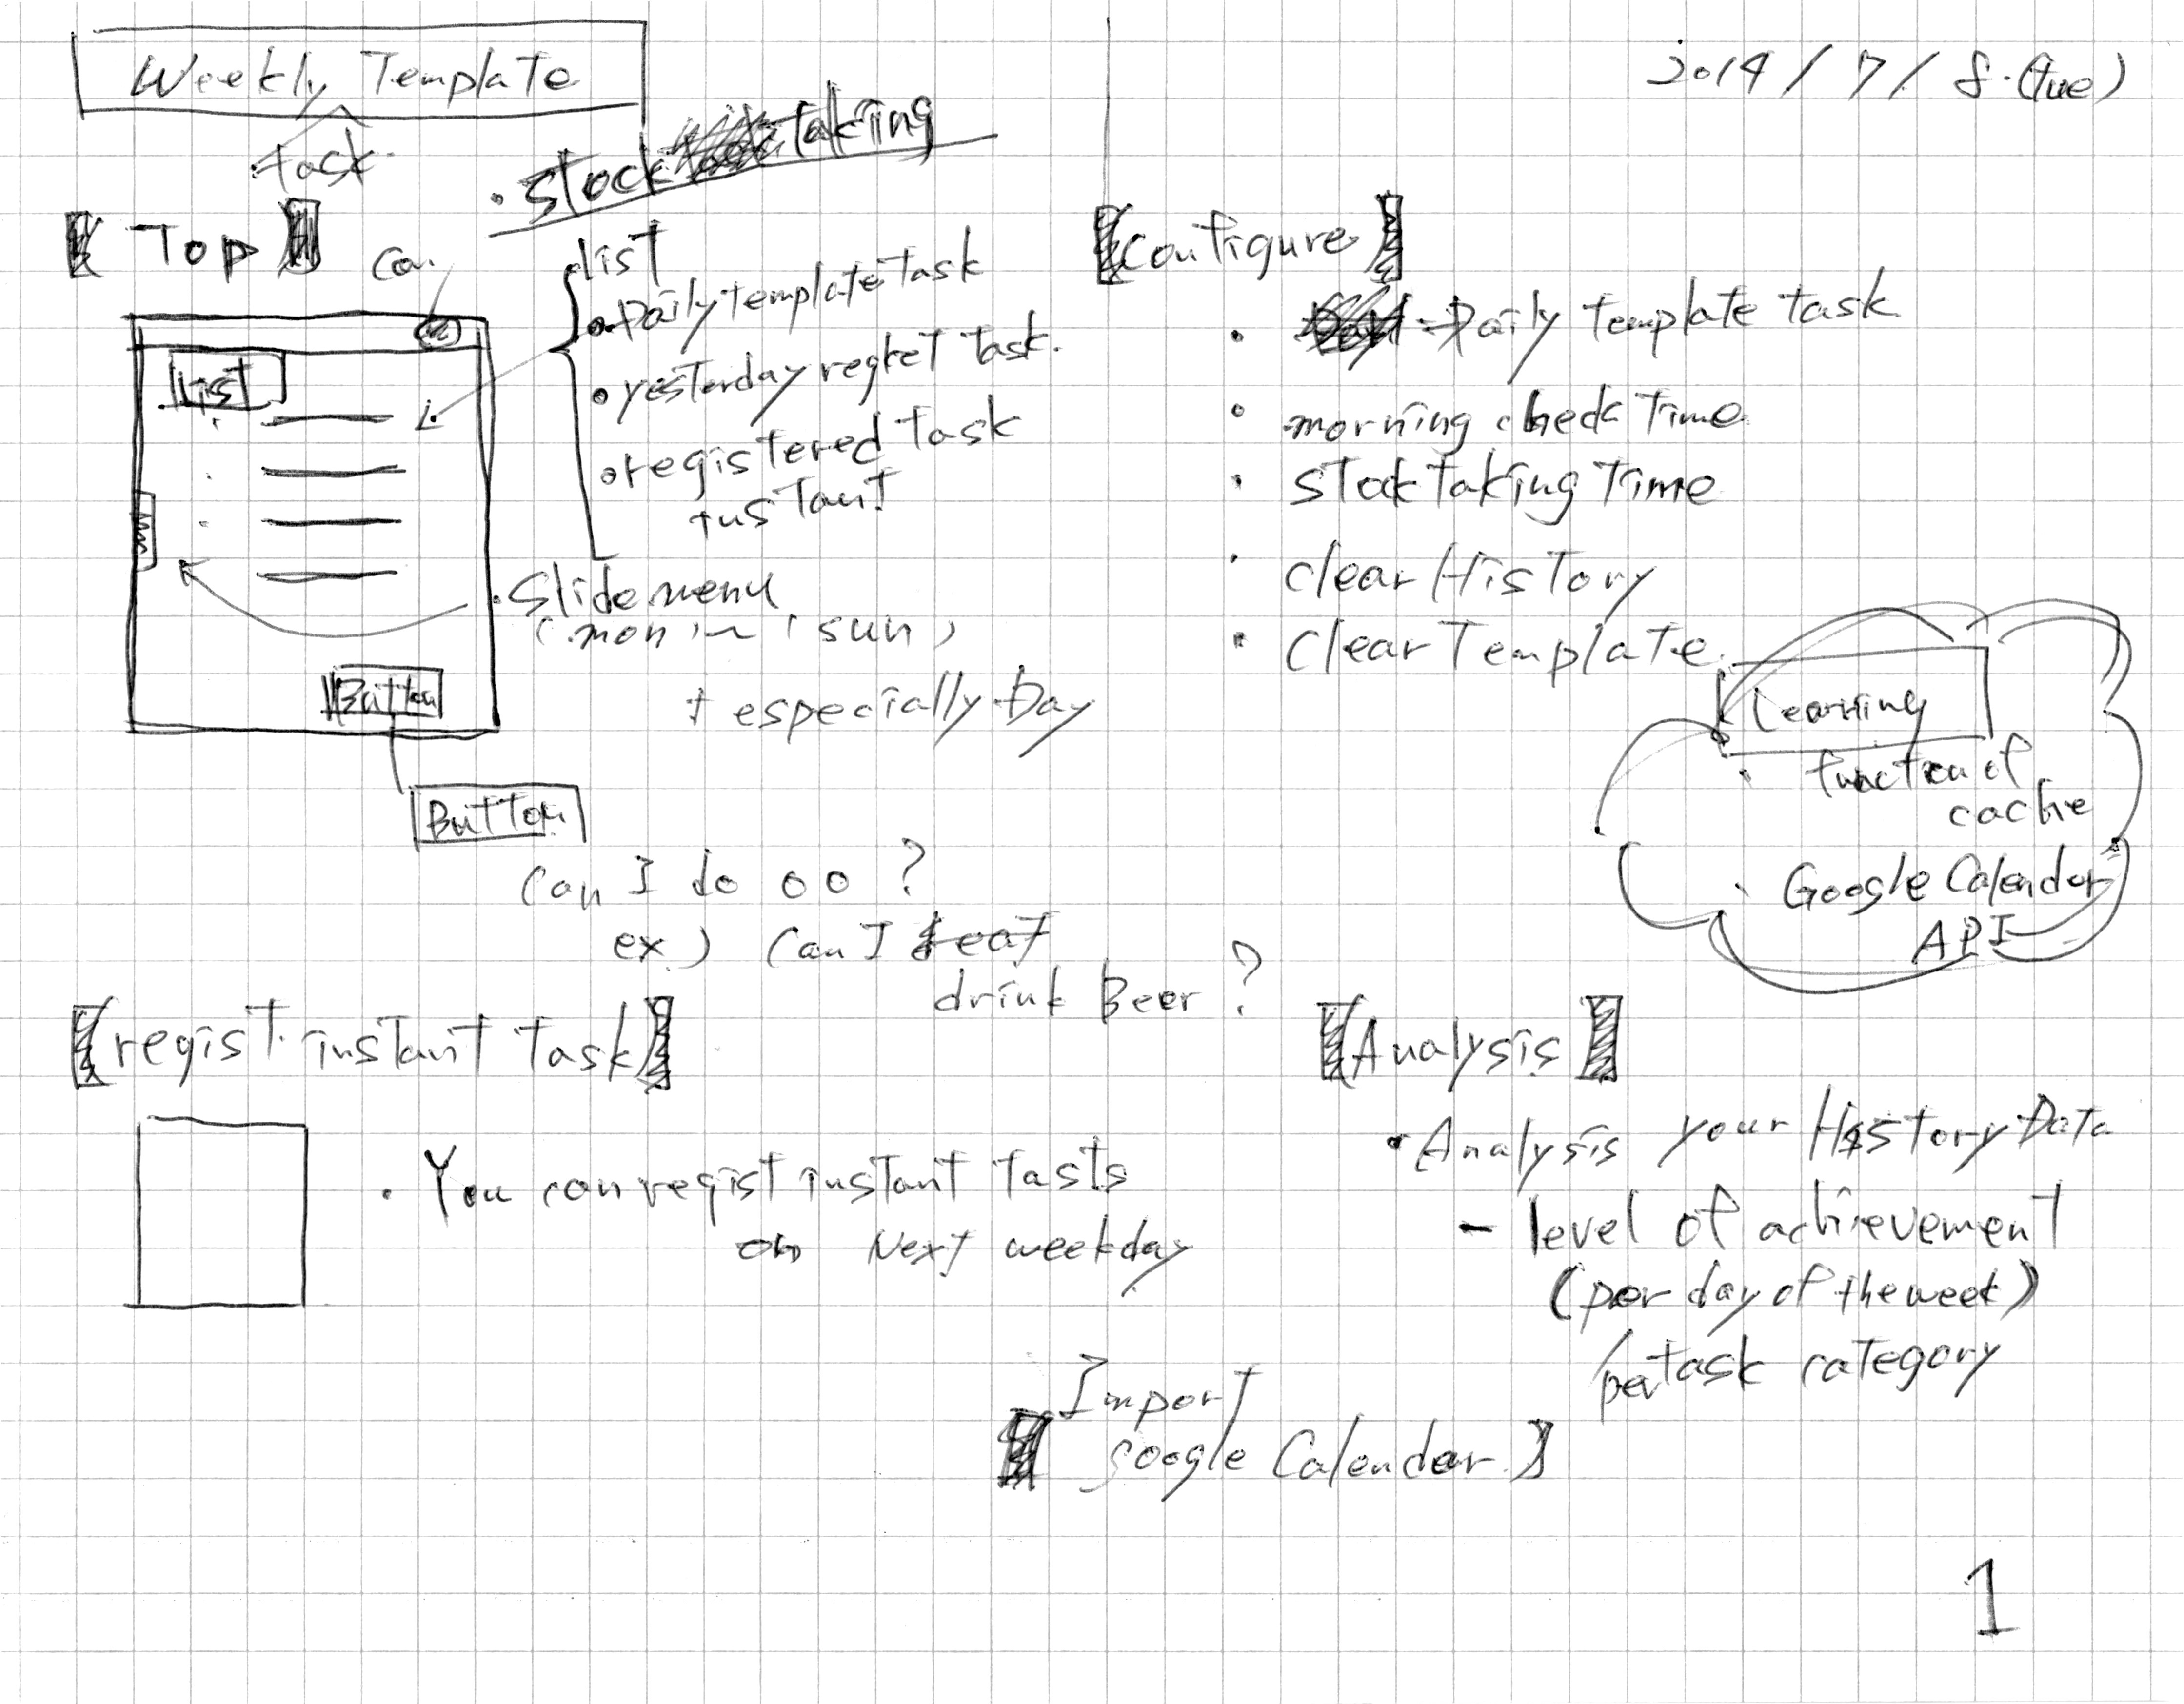 Weekly Template
2014/7/8.(Tue)
task
・stock taking
【Top】
Con
list
・Daily template Task
・yesterday regret Task.
・registered Task
instant
List
・Slide menu
(mon ~ sun)
+ especially Day
Button
Button
Can I do oo ?
ex.) Can I eat
drink Beer ?
【Configure】
・Daily Template Task
・morning check Time
・stock taking Time
・clear History
・clear Template
Learning
・function of
cache
・Google Calendar
API
【regist instant Task】
・You can regist instant Tasts
on Next weekday
【Analysis】
・Analysis your History Data
- level of achievement
(per day of the week)
/per task category
Import
【google Calendar】
1